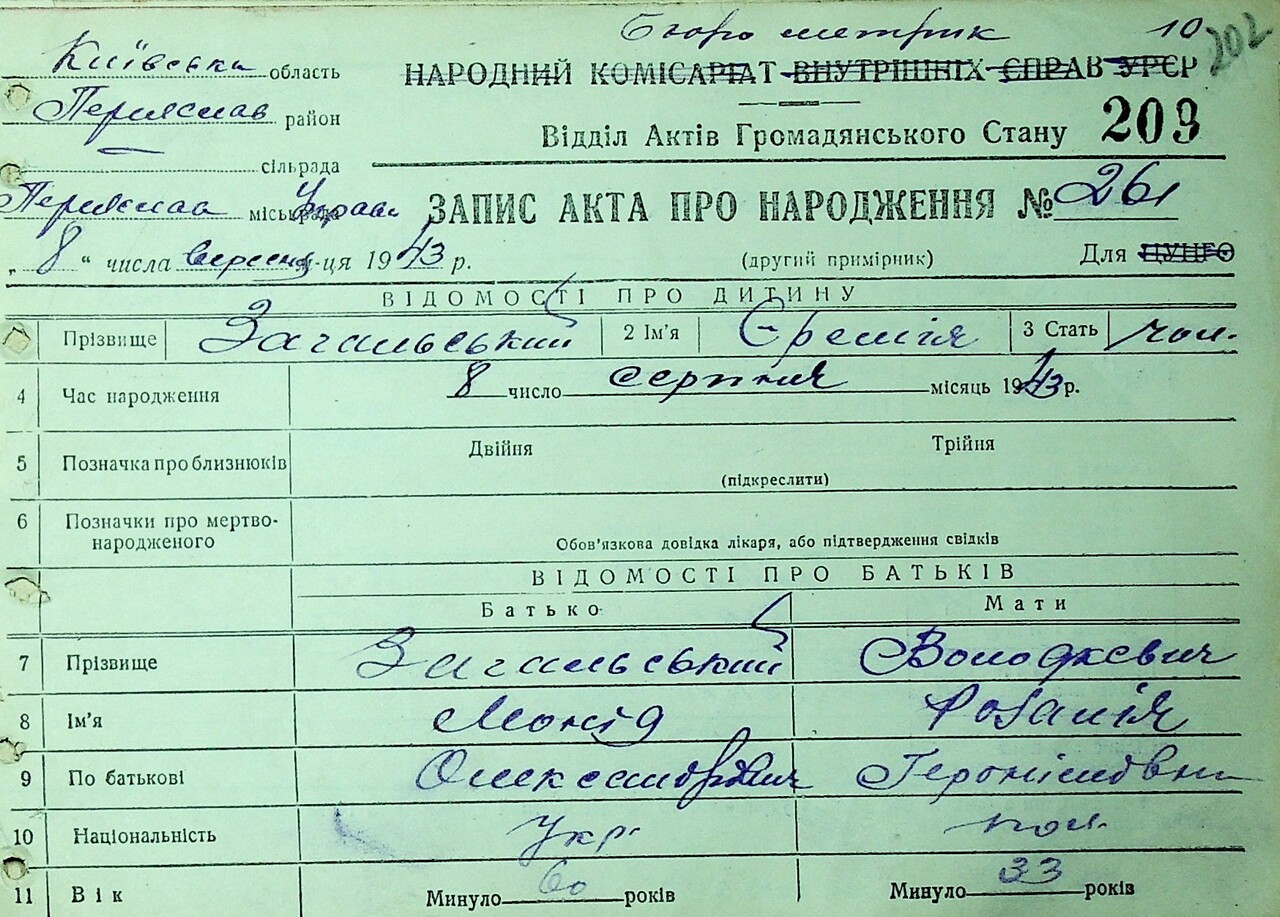 Бюро метрик 10 202
Київська область
НАРОДНИЙ КОМІСАРІАТ ВНУТРІШНІХ СПРАВ УРСР
Переяслав район
Відділ Актів Громадянського Стану 209
сільрада
Переяслав міськрада Управа
ЗАПИС АКТА ПРО НАРОДЖЕННЯ № 261
„ 8 “ числа вересня м-ця 1943 р.
(другий примірник)
Для ЦУНГО
ВІДОМОСТІ ПРО ДИТИНУ
Прізвище Загальський 2 Ім'я Єремія 3 Стать чол.
4 Час народження 8 число серпня місяць 1943 р.
5 Позначка про близнюків Двійня Трійня
(підкреслити)
6 Позначки про мертво-
народженого
Обов'язкова довідка лікаря, або підтвердження свідків
ВІДОМОСТІ ПРО БАТЬКІВ
Батько Мати
7 Прізвище Загальський Володкевич
8 Ім'я Розалія
9 По батькові Олександрович Геронімовна
10 Національність Укр. пол.
11 Вік Минуло 60 років Минуло 33 років